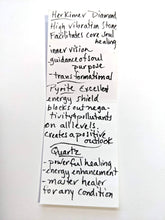 Herkimer Diamond
High vibration Stone
Facilitates core Soul
healing
inner vision
guidance of soul
purpose
-transformational
Pyrite Excellent
energy shield
blocks out nega-
tivity & pollutants
on all levels.
creates a positive
outlook
Quartz
-powerful healing
-energy enhancement
-master healer
for any Condition